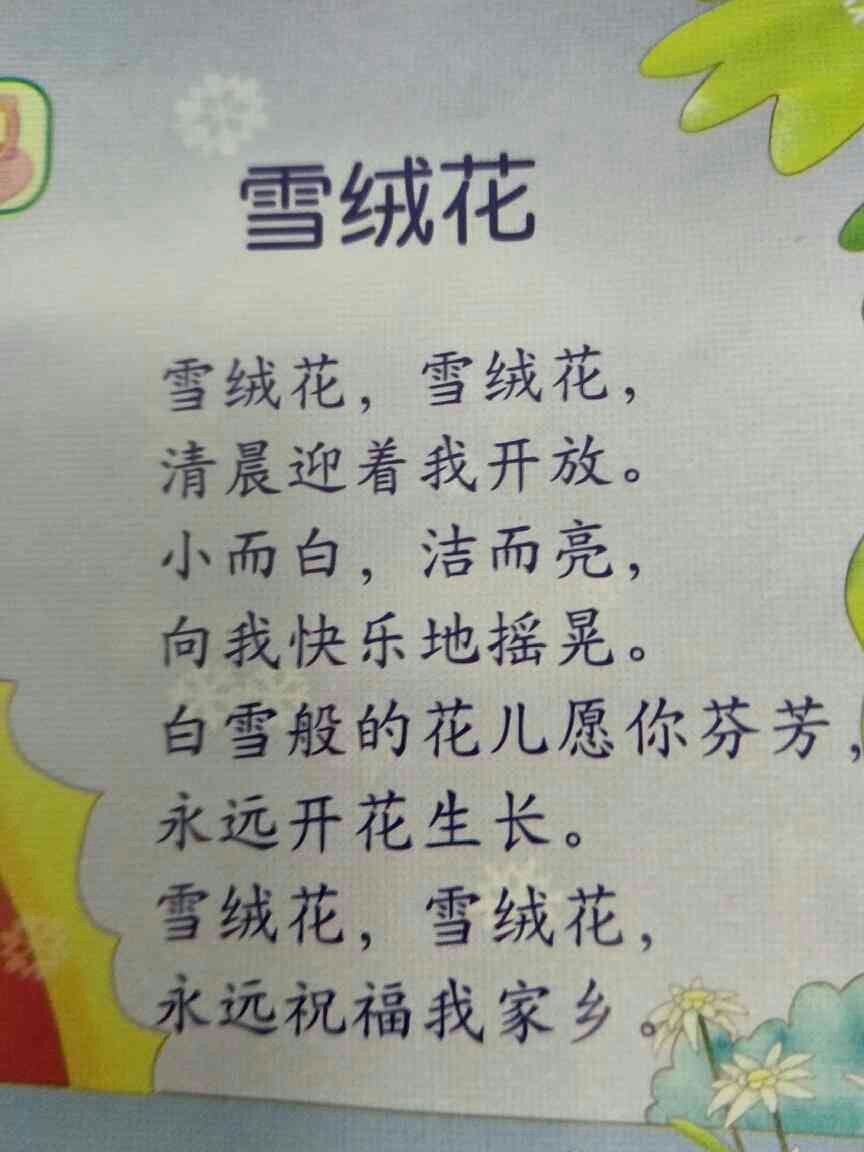 雪绒花
雪绒花，雪绒花，
清晨迎着我开放。
小而白，洁而亮，
向我快乐地摇晃。
白雪般的花儿愿你芬芳，
永远开花生长。
雪绒花，雪绒花，
永远祝福我家乡。